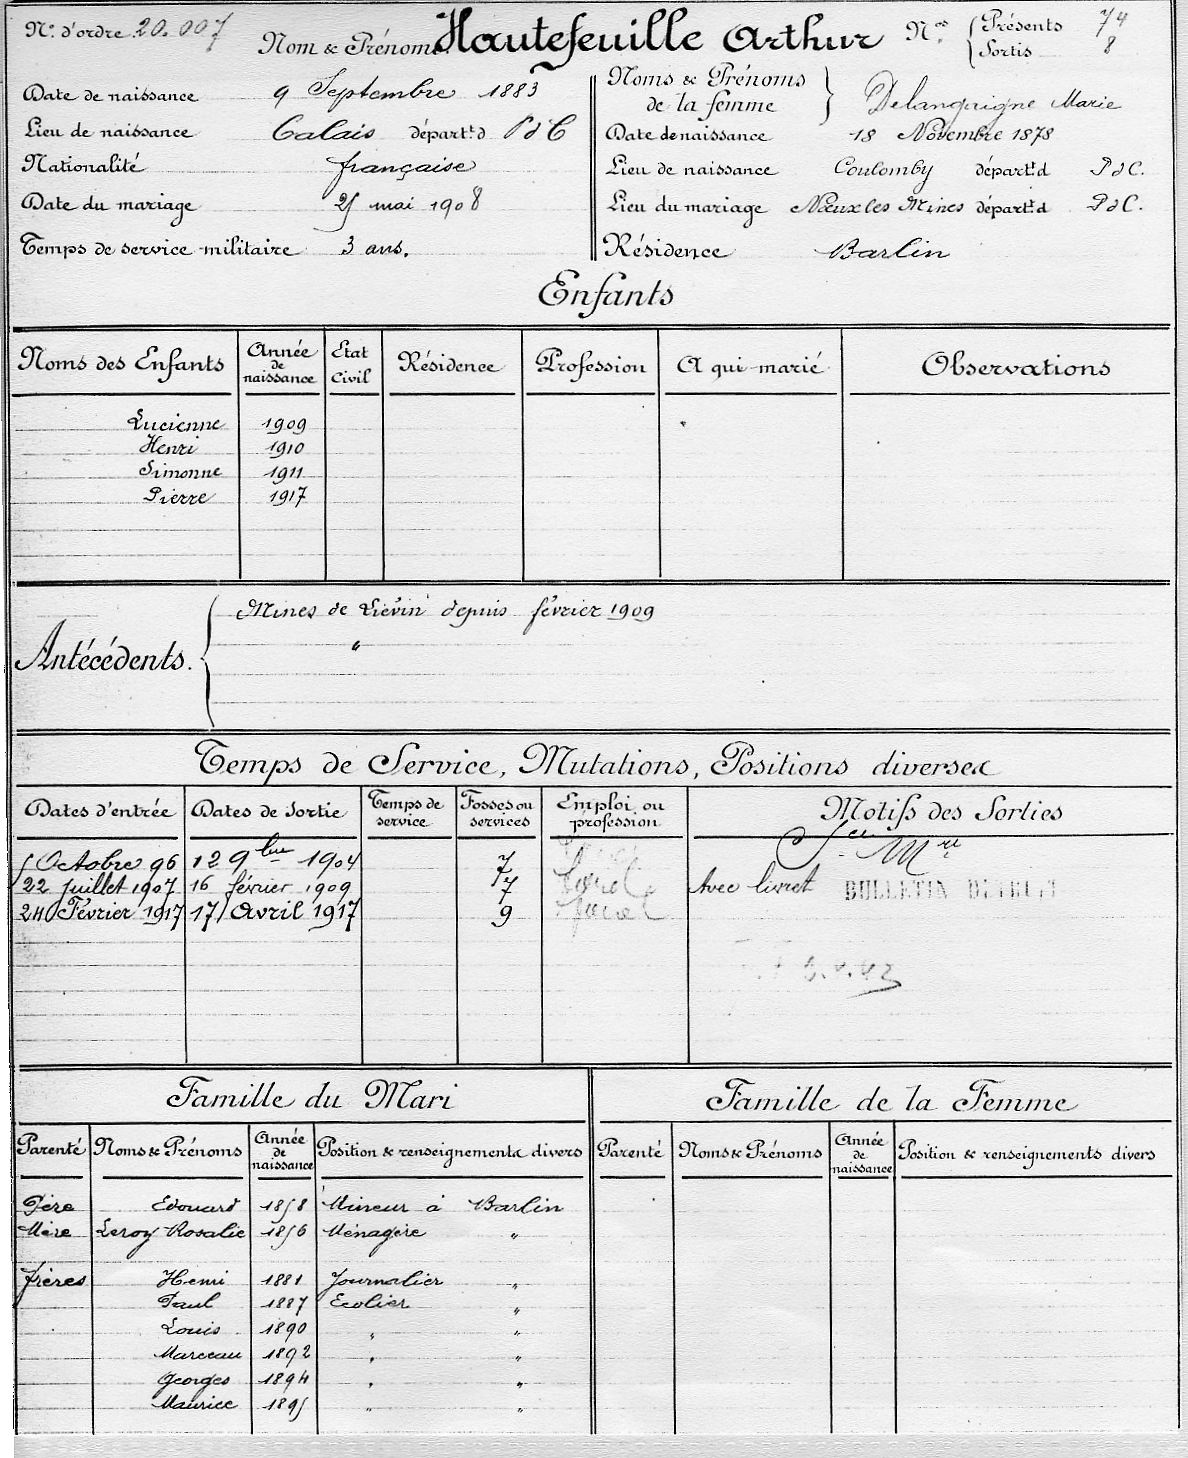 N° d'ordre 20.007 Nom & Prénoms Hautefeuille Arthur Nos Présents 74
Sortis 8
Date de naissance 9 Septembre 1883
Lieu de naissance Calais départt d PdC
Nationalité française
Date du mariage 25 mai 1908
Temps de service militaire 3 ans.
Noms & Prénoms de la femme Delanquigne Marie
Date de naissance 18 Novembre 1878
Lieu de naissance Coulomby départt d PdC.
Lieu du mariage Nœux les Mines départt d PdC.
Résidence Barlin
Enfants
Noms des Enfants Année de naissance Etat Civil Résidence Profession A qui marié Observations
Lucienne 1909
Henri 1910
Simonne 1911
Pierre 1917
Antécédents. Mines de Liévin depuis février 1909
"
Temps de Service, Mutations, Positions diverses
Dates d'entrée Dates de Sortie Temps de service Fosses ou services Emploi ou profession Motifs des Sorties
5 Octobre 96 12 9bre 1904 7 Sce Mre
22 juillet 1907 16 février 1909 7 Avec livret BULLETIN DETRUIT
24 Février 1917 17 Avril 1917 9
Famille du Mari Famille de la Femme
Parenté Noms & Prénoms Année de naissance Position & renseignements divers Parenté Noms & Prénoms Année de naissance Position & renseignements divers
Père Edouard 1858 Mineur à Barlin
Mère Leroy Rosalie 1856 Ménagère "
frères Henri 1881 Journalier "
Paul 1887 Ecolier "
Louis 1890 " "
Marceau 1892 " "
Georges 1894 " "
Maurice 1895 " "